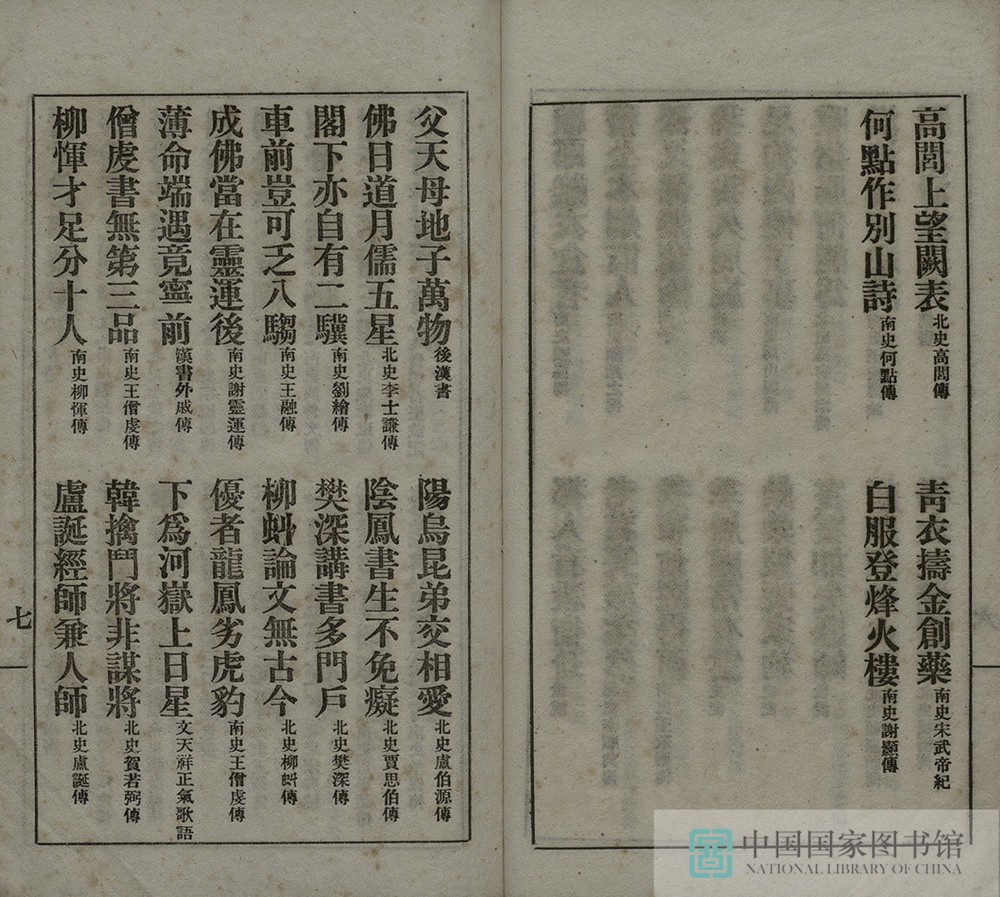 高閭上望闕表北史高閭傳 青衣擣金創藥南史宋武帝紀
何點作別山詩南史何點傳 白服登烽火樓南史謝顥傳
父天母地子萬物後漢書 陽烏昆弟交相愛北史盧伯源傳
佛日道月儒五星北史李士謙傳 陰鳳書生不免癡北史賈思伯傳
閣下亦自有二驥南史劉繪傳 樊深講書多門戶北史樊深傳
車前豈可乏八騶南史王融傳 柳虯論文無古今北史柳虯傳
成佛當在靈運後南史謝靈運傳 優者龍鳳劣虎豹南史王僧虔傳
薄命端遇竟寧前漢書外戚傳 下為河嶽上日星文天祥正氣歌語
僧虔書無第三品南史王僧虔傳 韓擒鬥將非謀將北史賀若弼傳
柳惲才足分十人南史柳惲傳 盧誕經師兼人師北史盧誕傳
七
中国国家图书馆
NATIONAL LIBRARY OF CHINA